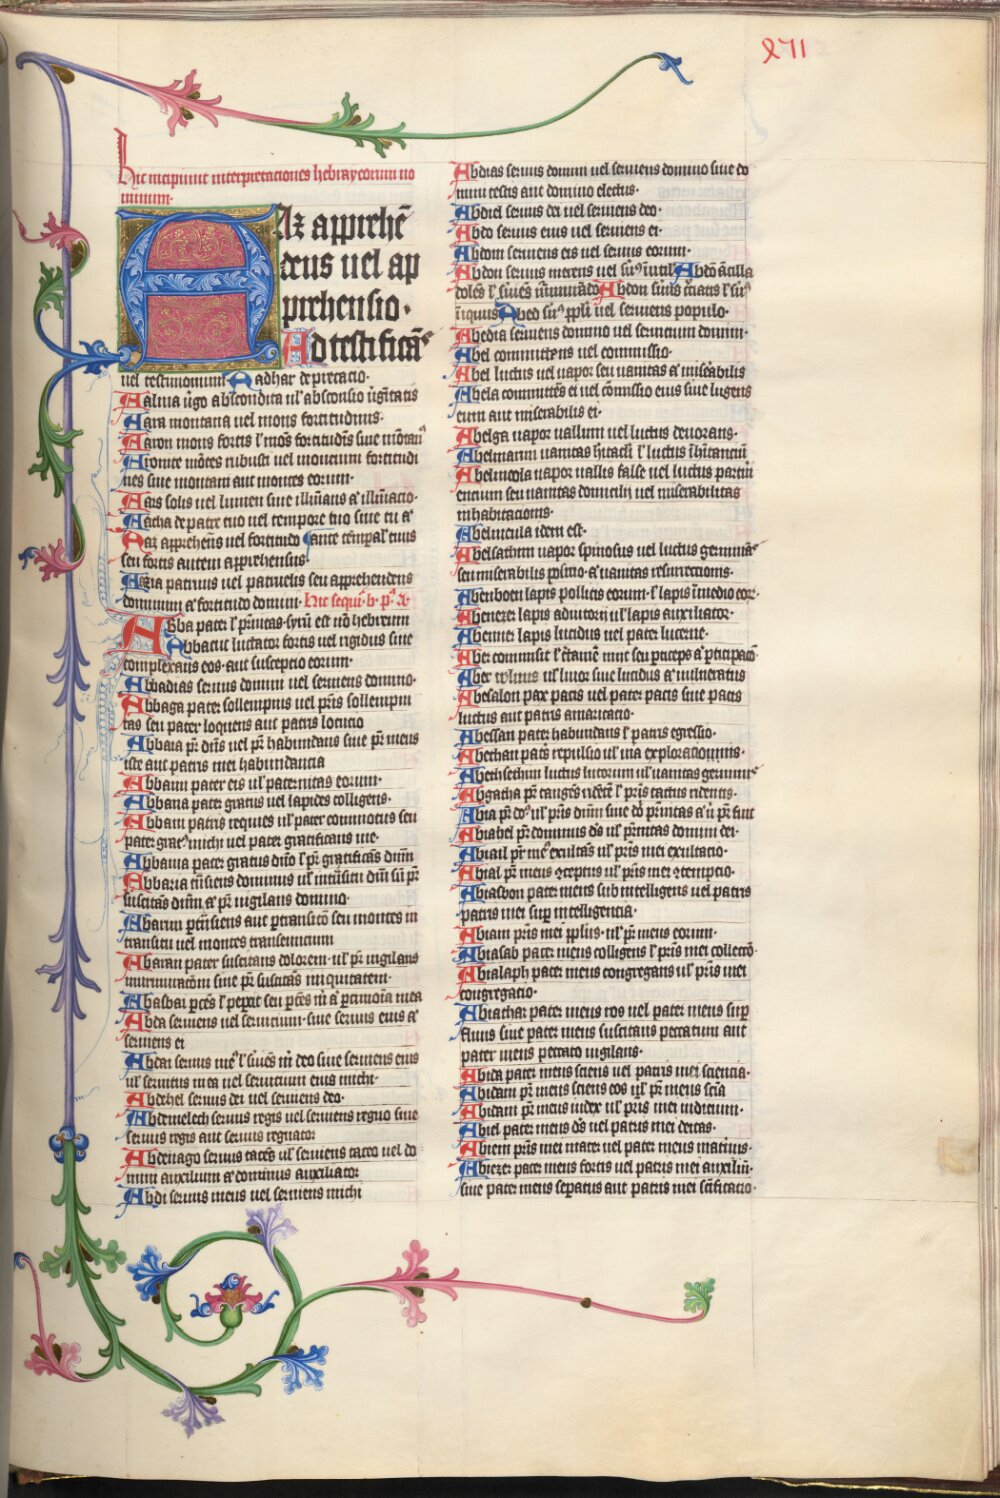 Hic incipiunt interpretaciones hebraycorum no
minum·
Aaz apprehē
dens uel ap
prehensio·
Ad testificās
uel testimonium· Aadhar deprecacio·
Aalma v̄go abscondita ul' absconsio v̄gītatis
Aara montana uel mons fortitudinis·
Aaron mons fortis l' mōs fortitudīs siue mōtan9
Aronite mōtes robusti uel moncium fortitudi
nes siue montani aut montes eorum·
Aars solis uel lumen siue illuīans aut illuīacio·
Aacha de patre tuo uel tempore tuo siue tu a
Aaz apprehens uel fortitudo sance tēmpal' eius
seu fortis autem apprehensus·
Aazia patruus uel patruelis seu apprehendens
dominum aut fortitudo domini· Hic sequi' b p9 a·
Abba pater l' pr̄nitas· syrū est nō hebreum
Abbacuc luctator fortis uel rigidus siue
complexans eos· aut susceptio eorum·
Abbadias seruus domini uel seruiens domino·
Abbaga pater sollempnis uel pr̄is sollempni
tas seu pater loquens aut patris locucio
Abbaia pr̄ dn̄s uel pr̄ habundans siue pr̄ meus
iste aut patris mei habundancia
Abbam pater eis ul' paternitas eorum·
Abbana pater gratus uel lapides colligens·
Abbam patris requies ul' pater commotus seu
pater grat9 michi uel pater gratificans me·
Abbania pater gratus dn̄o l' pr̄ gratificās dn̄m
Abbaria tn̄siens dominus ul' intn̄siti dn̄m sū pr̄
suscitās dn̄m aut pr̄ uigilans domino·
Abarim ptn̄siens aut pertransitō seu montes in
transitu uel montes transeuncium
Abaran pater suscitans dolorem· ul' pr̄ uigilans
murmuracōm siue pr̄ suscitās iniquitatem·
Abasbai pctēs l' pepat seu pctēs m̄ aut p̄timoīa mea
Abda seruiens uel seruicium· siue seruus eius aut
seruiens ei
Abdai seruus me9 l' suiēs m̄ deo siue seruiens eius
ul' seruitus mea uel seruicium eius michi·
Abdehel seruus dei uel seruiens deo·
Abdemelech seruus regis uel seruiens regno siue
seruus regis aut seruus regnator
Abdenago seruus tacēs ul' seruiens taceo uel do
mini auxilium aut continuus auxiliator
Abdi seruus meus uel seruiens michi
Abdias seruus domini uel seruiens domino siue do
mini testis aut domino electus·
Abdiel seruus dei uel seruiens deo·
Abdo seruus eius uel seruiens ei·
Abdom seruiens eis uel seruus eorum·
Abdon seruus merens uel su9 inutil' Abdō ācilla
dolēs l' suiēs
iniquus Abed su9 ppli uel seruiens populo·
Abedia seruiens domino uel seruicium domini·
Abel committens uel commissio·
Abel luctus uel uapor seu uanitas aut misērabilis
Abela committēs ei uel cōmissio eius siue lugens
eum aut miserabilis ei·
Abelga uapor uallium uel luctus deuorans·
Abelmaim uanitas
Abelmeola uapor uallis false uel luctus parturi
encium seu uanitas domicilij uel miserabilitas
inhabitacionis·
Abelmeula idem est·
Abelsathim uapor spinosus uel luctus germinās
seu miserabilis positio· aut uanitas resurrectionis·
Abenboen lapis pollicis eorum· l' lapis ī medio eor·
Abenezer lapis adiutorij ul' lapis auxiliator·
Abenner lapis lucidus uel pater lucerne·
Aber commisit
Aber uolnus ul' liuor siue liuidus aut uulneratus
Abesalon pax pacis uel pater pacis siue pacis
luctus aut patris amaricacio·
Abessan pater habundans l' patris egressio·
Abethan patris repulsio ul' uia exploracionis·
Abethsethim luctus litorum ul' uanitas germinis
Abgatha pr̄ tangēs l' pr̄is tactus ridentis·
Abia pr̄ do9 ul' pr̄is dn̄m siue dō pr̄nitas aut pr̄ fuit
Abiahel pr̄ dominus ds̄ ul' pr̄nitas domini dei·
Abiail pr̄ me9 exultās ul' pr̄is mei exultacio·
Abial pr̄ meus
Abiasbon pater meus sub intelligens uel patris
patris mei sup intelligencia·
Abiam pr̄is mei pplus· ul' pr̄ meus eorum·
Abiasab pater meus colligens l' pr̄is mei collectō·
Abialaph pater meus congregans ul' pr̄is mei
congregatio·
Abiathar pater meus ros uel pater meus sup
fluus siue pater meus suscitans peccatum aut
pater meus peccato uigilans·
Abida pater meus sciens uel patris mei sciencia·
Abidam pr̄ meus sciens eos ul' pr̄ meus sc̄ia
Abidam pr̄ meus iudex ul' pr̄is mei iudicium·
Abiel pater meus ds̄ uel patris mei deitas·
Abiem pr̄is mei mater uel pater meus maternus·
Abiezer pater meus fortis uel patris mei auxiliū·
siue pater meus sepatus aut patris mei sc̄ificacio·